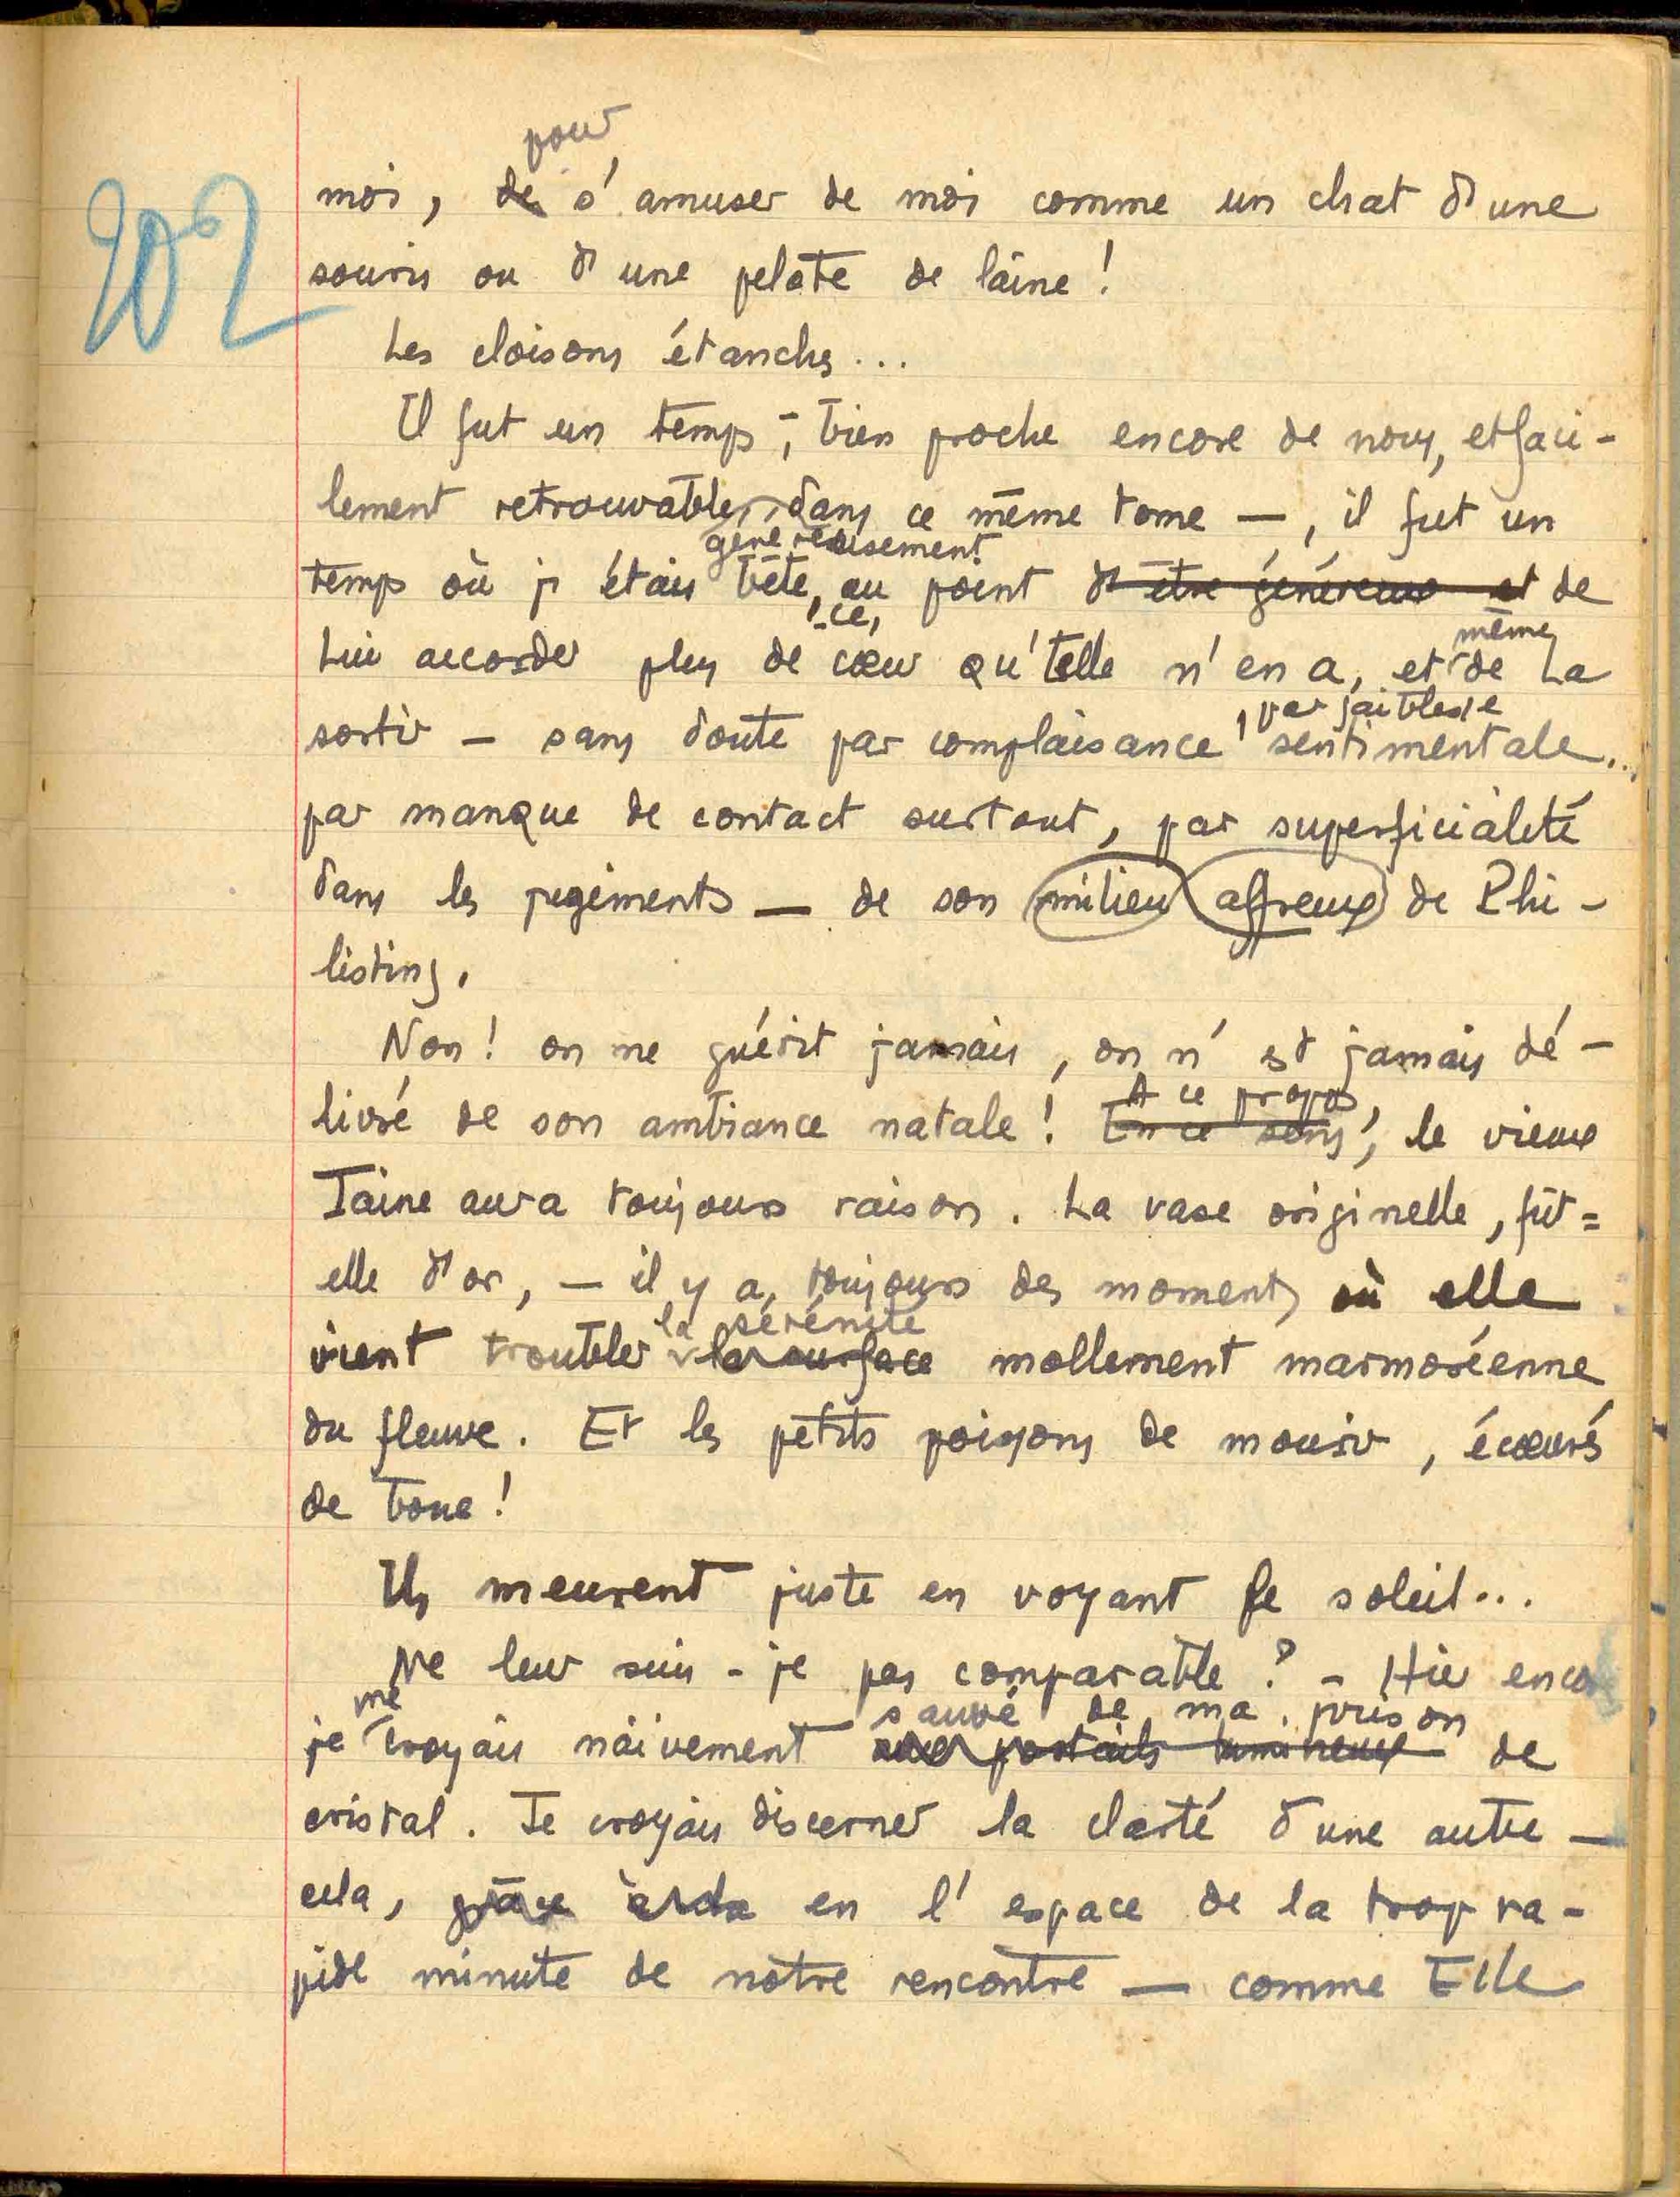 pour
202
moi, de s'amuser de moi comme un chat d'une
souris ou d'une pelote de laine!
Les cloisons étanches...
Il fut un temps -, bien proche encore de nous, et faci-
lement retrouvable, dans ce même tome —, il fut un
généreusement
temps où j'étais bête, au point d'être généreux et de
-ce,
même
Lui accorder plus de cœur qu'Elle n'en a, et de La
, par faiblesse
sortir - sans doute par complaisance sentimentale...
par manque de contact surtout, par superficialité
dans les jugements — de son milieu affreux de Phi-
listins.
Non! on ne guérit jamais, on n'est jamais dé-
A ce propos,
livré de son ambiance natale! En ce sens, le vieux
Taine aura toujours raison. La vase originelle, fût=
elle d'or, — il y a toujours des moments où elle
la sérénité
vient troubler la surface mollement marmoréenne
du fleuve. Et les petits poissons de mourir, écœurés
de boue!
Ils meurent juste en voyant le soleil...
Ne leur suis-je pas comparable? - Hier encore
me
sauvé de ma prison
je croyais naïvement aux portails lumineux de
cristal. Je croyais discerner la clarté d'une autre —
cela, grâce à en l'espace de la trop ra-
pide minute de notre rencontre — comme Elle